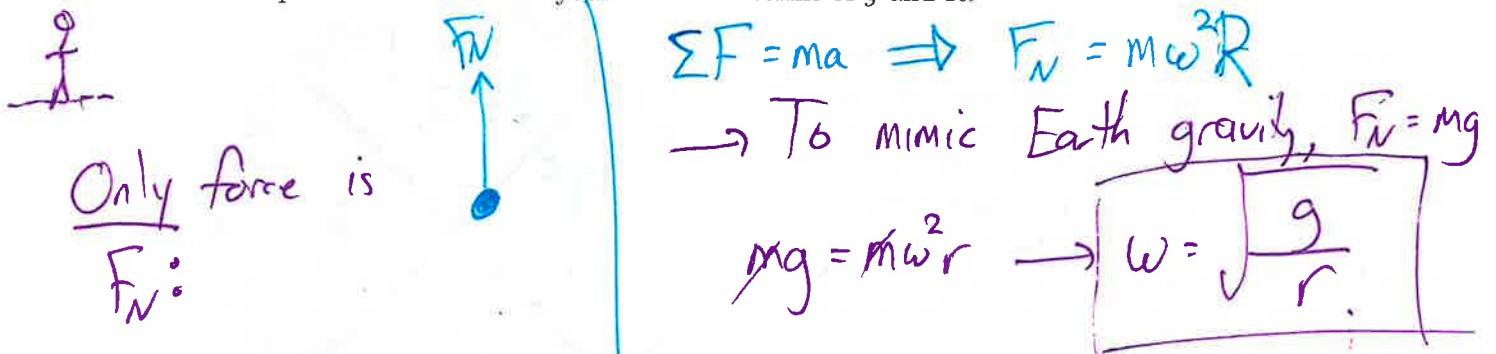 g and R.
Only force is
F_N:
F_N
ΣF = ma ⇒ F_N = mω²R
→ To mimic Earth gravity, F_N = mg
mg = mω²r → ω = √(g/r).